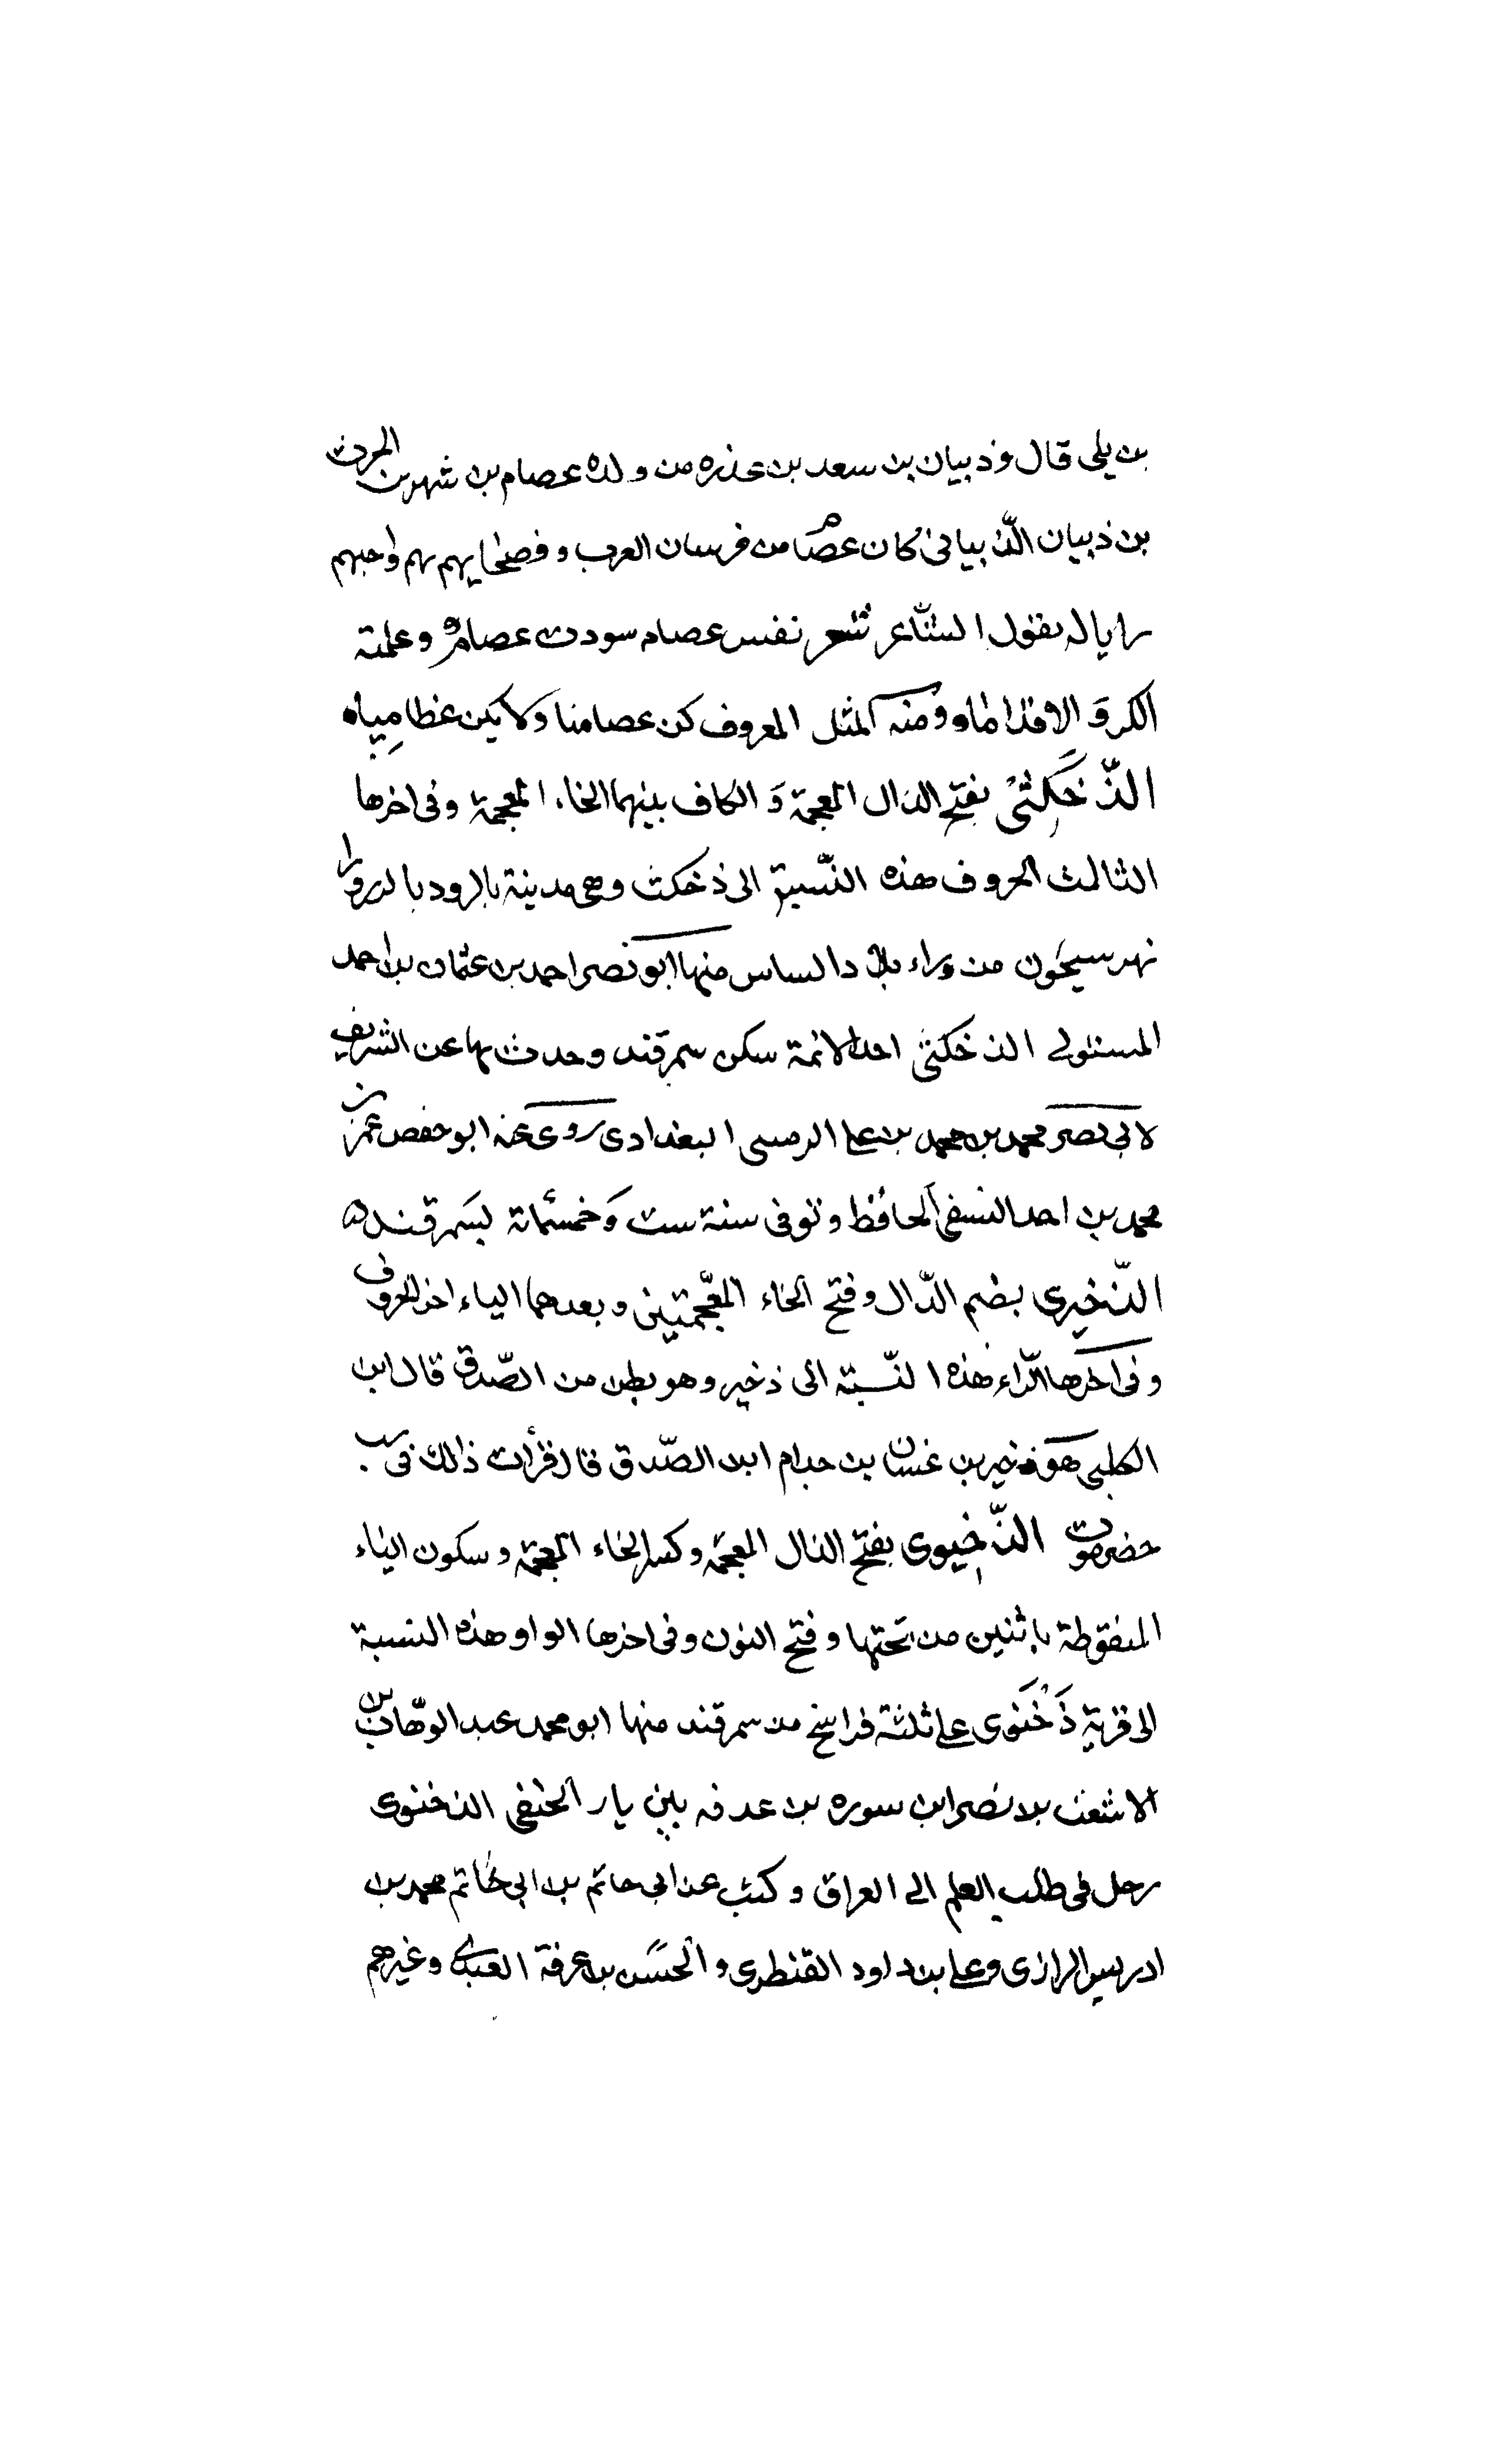 بن يلى قال وذبيان بن سعد بن عذره من ولده عصام بن شهر بن الحرث
بن ذبيان الذبيانى كان عصام من فرسان العرب و فصحايهم واحبهم
رايا له يقول الشاعر شعر نفس عصام سودت عصاما وعلمته
الكر و الاقداما ومنه المثل المعروف كن عصاميا ولا يكن عظاميا ه
الذَخَكَثى بفتح الذال المعجمة وَ الكاف بينهما الخاء المعجمة وفى اخرها
الثالث الحروف هذه النسبة الى ذخكث وهى مدينة بالرودبار ورا
نهر سيحون من وراء بلاد الساس منها ابو نصر احمد بن عثمان بن احمد
المستولى الذخكثى احد الائمة سكن سمرقند وحدث بها عن الشريف
لابى نصر محمد بن محمد بن على الرسى البغدادى روى عنه ابو حفص عمر بن
محمد بن احمد النسفى الحافظ و توفى سنة ست وَ خمسمائة بسمرقند ه
الذّخيرى بضم الذّال وفتح الخاء المعجمتين و بعدهما الياء اخر الحروف
وفى اخرها الرّاء هذه النّسبة الى ذخير وهو بطن من الصّدق قال ابن
الكلبى هو ذخير بن غسان بن حدام ابن الصّدق قال قرأت ذالك فى نسب
حضرموت الذّخِيوى بفتح الذال المعجمة وكسر الخاء المعجمة و سكون الياء
المنقوطة باثنين من تحتها و فتح النون وفى اخرها الواو هذه النسبة
الى قرية ذَخْنَوى على ثلثة فراسخ من سمرقند منها ابو محمد عبد الوهّاب بن
الاشعث بن نصر ابن سوره بن عدفه بن يار الحنفى الذخنوى
رحل فى طلب العلم الى العراق و كتب عن ابى حاتم بن ابى حاتم محمد بن
ادريس الرازى وعلى بن داود القنطرى و الحسَن بن عرفة العبدى وغيرهم